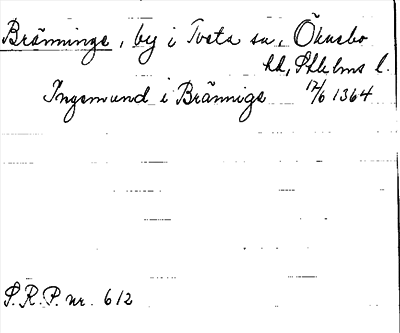 Bränninge, by i Tveta sn, Öknebo
hd, Sthlms l.
Ingemund i Brännigs 17/6 1364
S.R.P. nr. 612